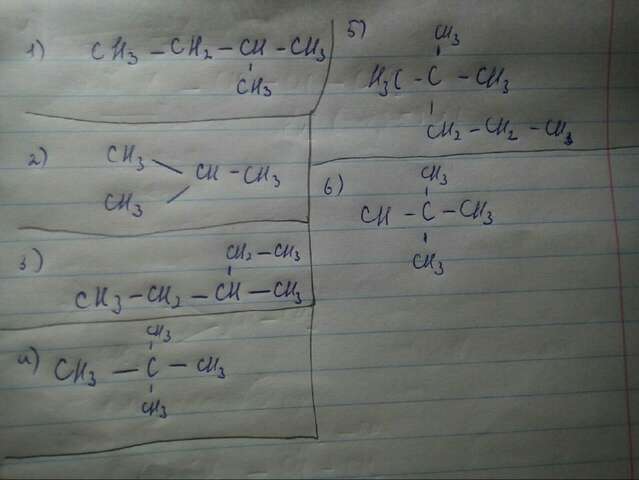 1) CH3 – CH2 – CH – CH3
CH3
2) CH3
CH – CH3
CH3
3) CH2 – CH3
CH3 – CH2 – CH – CH3
4) CH3
CH3 – C – CH3
CH3
5) CH3
H3C – C – CH3
CH2 – CH2 – CH3
6) CH3
CH – C – CH3
CH3